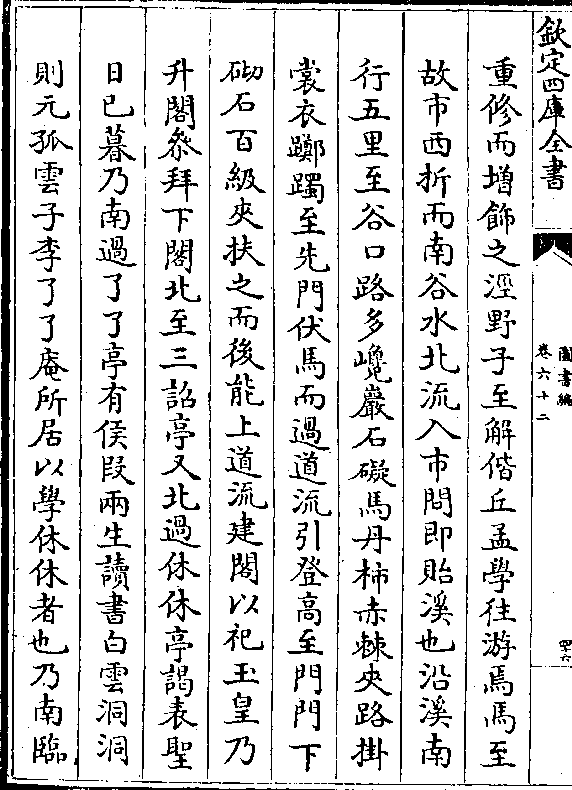 欽定四庫全書
圖書編
卷六十二
四十六
重修而增飾之涇野子至解偕丘孟學往游焉馬至
故市西折而南谷水北流入市問即貽溪也沿溪南
行五里至谷口路多巉巖石礙馬丹柿赤棘夾路掛
裳衣躑躅至先門伏馬而過道流引登高至門門下
砌石百級夾扶之而後能上道流建閣以祀玉皇乃
升閣叅拜下閣北至三詔亭又北過休休亭謁表聖
日已暮乃南過了了亭有侯段兩生讀書白雲洞洞
則元孤雲子李了了庵所居以學休休者也乃南臨